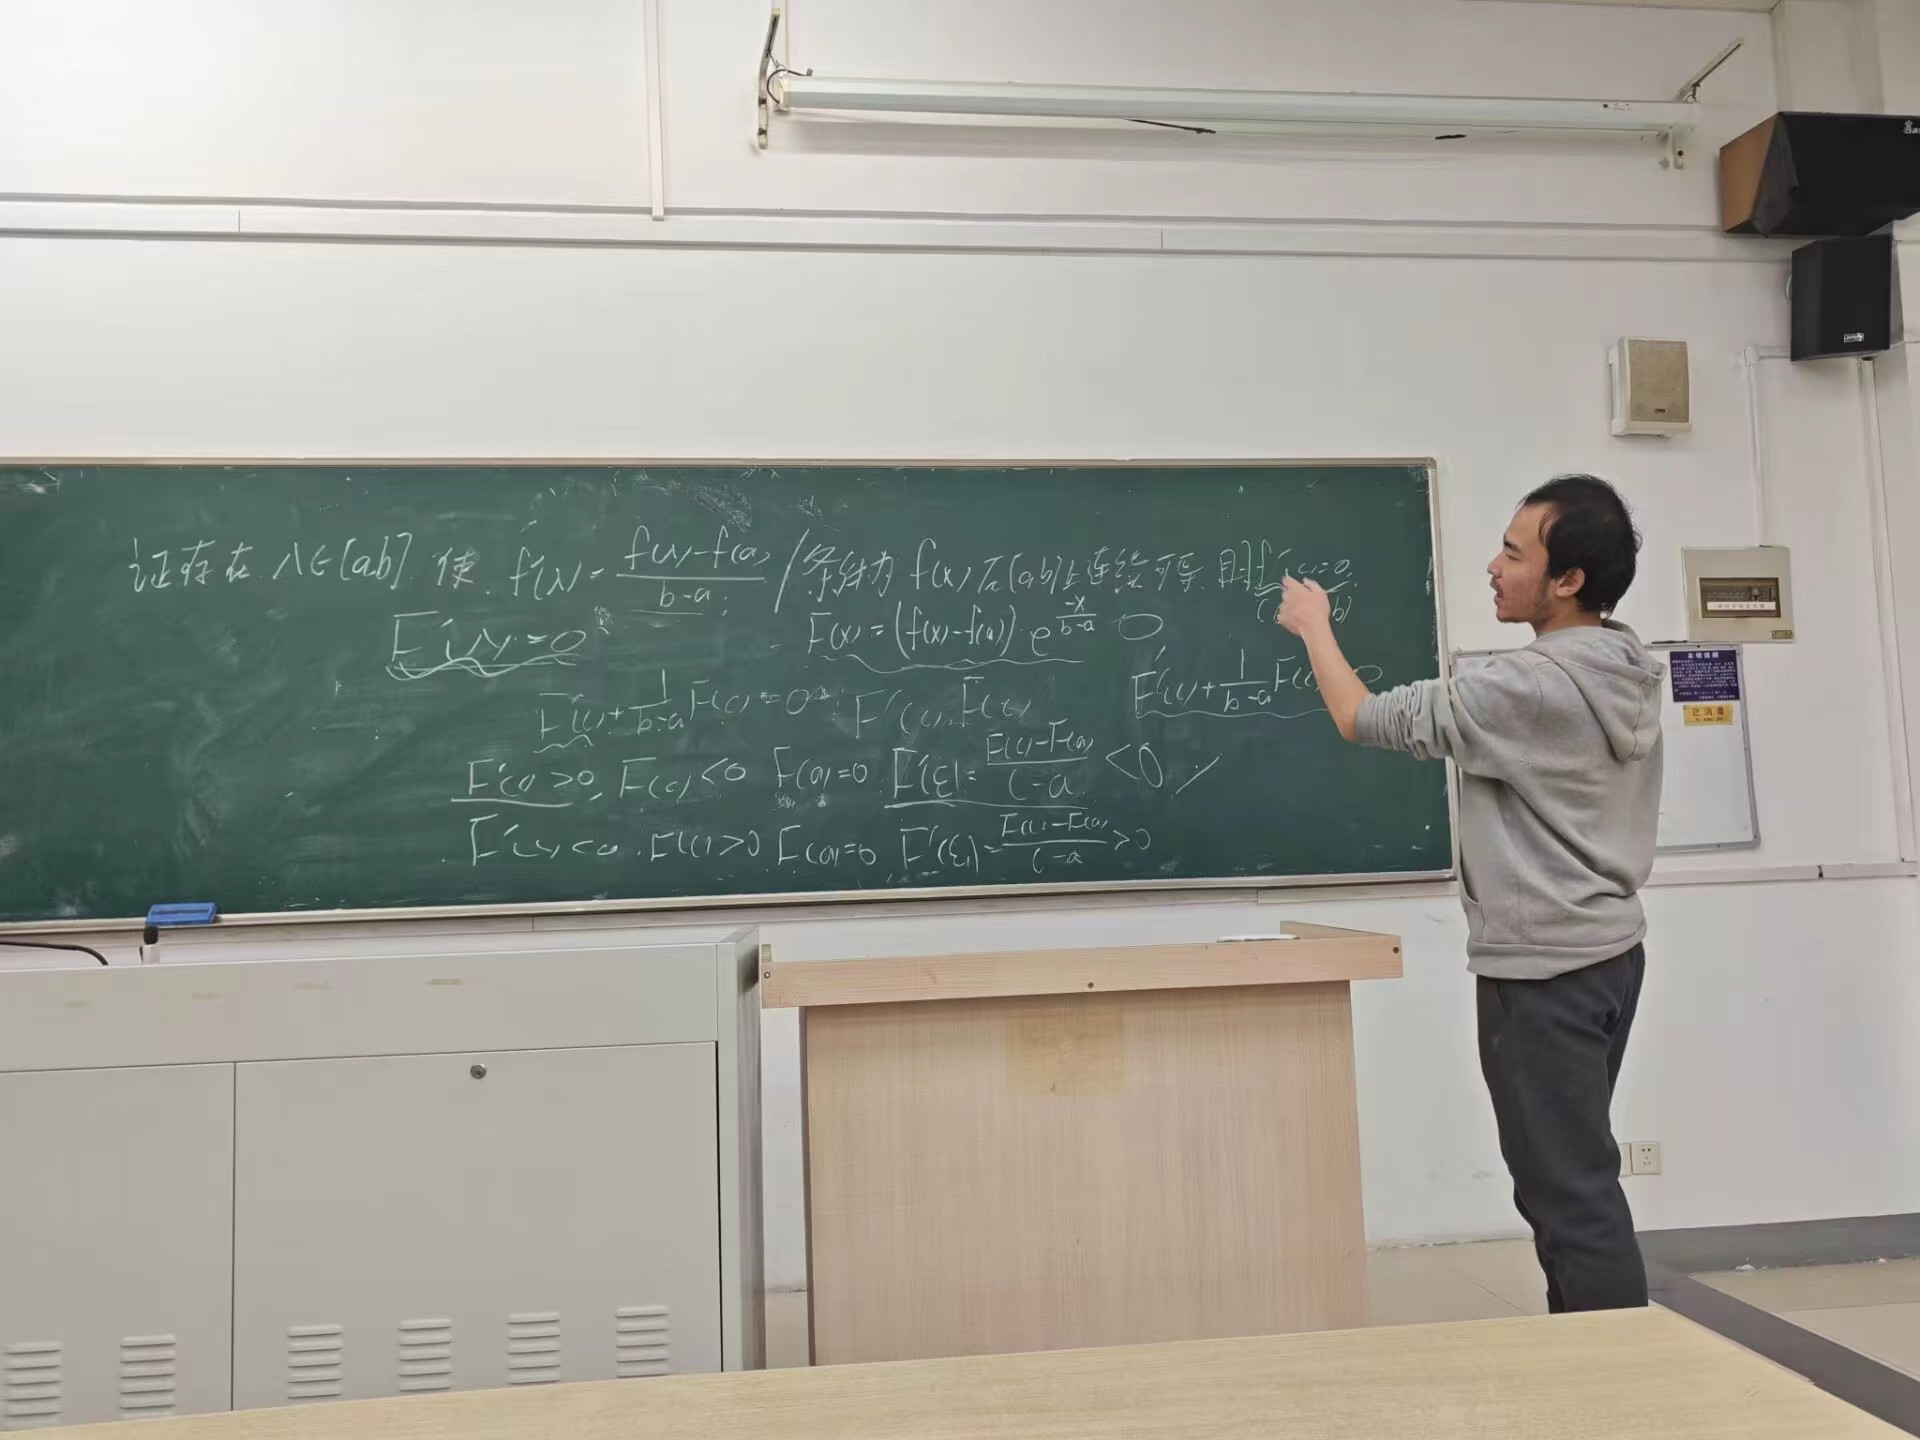 证存在 λ∈[a,b]. 使. f'(λ) = (f(λ)-f(a))/(b-a) / 条件为 f(x)在[a,b]上连续可导. 且f'(c)=0.
F'(λ)=0 F(x) = (f(x)-f(a))·e^(-x/(b-a)) 0 b)
F'(c)+1/(b-a) F(c)=0 F'(c). F(c) F'(c)+1/(b-a) F(c) 0
F'(c)>0, F(c)<0 F(a)=0 F'(ξ)= (F(c)-F(a))/(c-a) <0
F'(c)<0. F(c)>0 F(a)=0 F'(ξ)= (F(c)-F(a))/(c-a) >0
已消毒